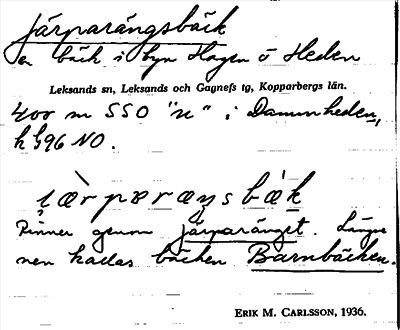 Järparängsbäck
en bäck i byn Hagen o Heden
Leksands sn, Leksands och Gagnefs tg, Kopparbergs län.
400 m SSO "n" i Dammheden,
k 596 NO.
i̯æ̀rpæræŋsbæ̀k
Rinner genom järparänget. Längre
ner kallas bäcken Barnbäcken.
ERIK M. CARLSSON, 1936.